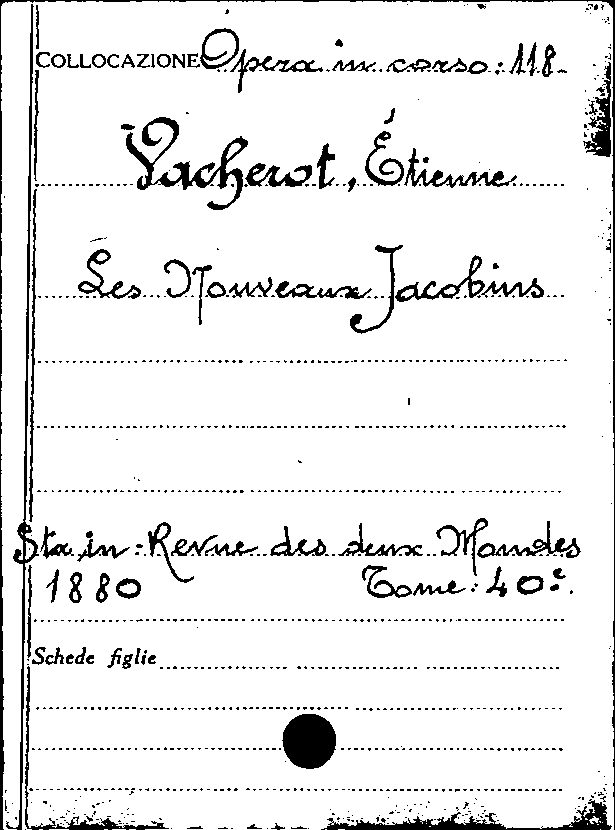 COLLOCAZIONE Opera in corso: 118.
Vacherot, Étienne
Les Nouveaux Jacobins
Sta in: Revue des deux Mondes
1880 Tome: 40e.
Schede figlie